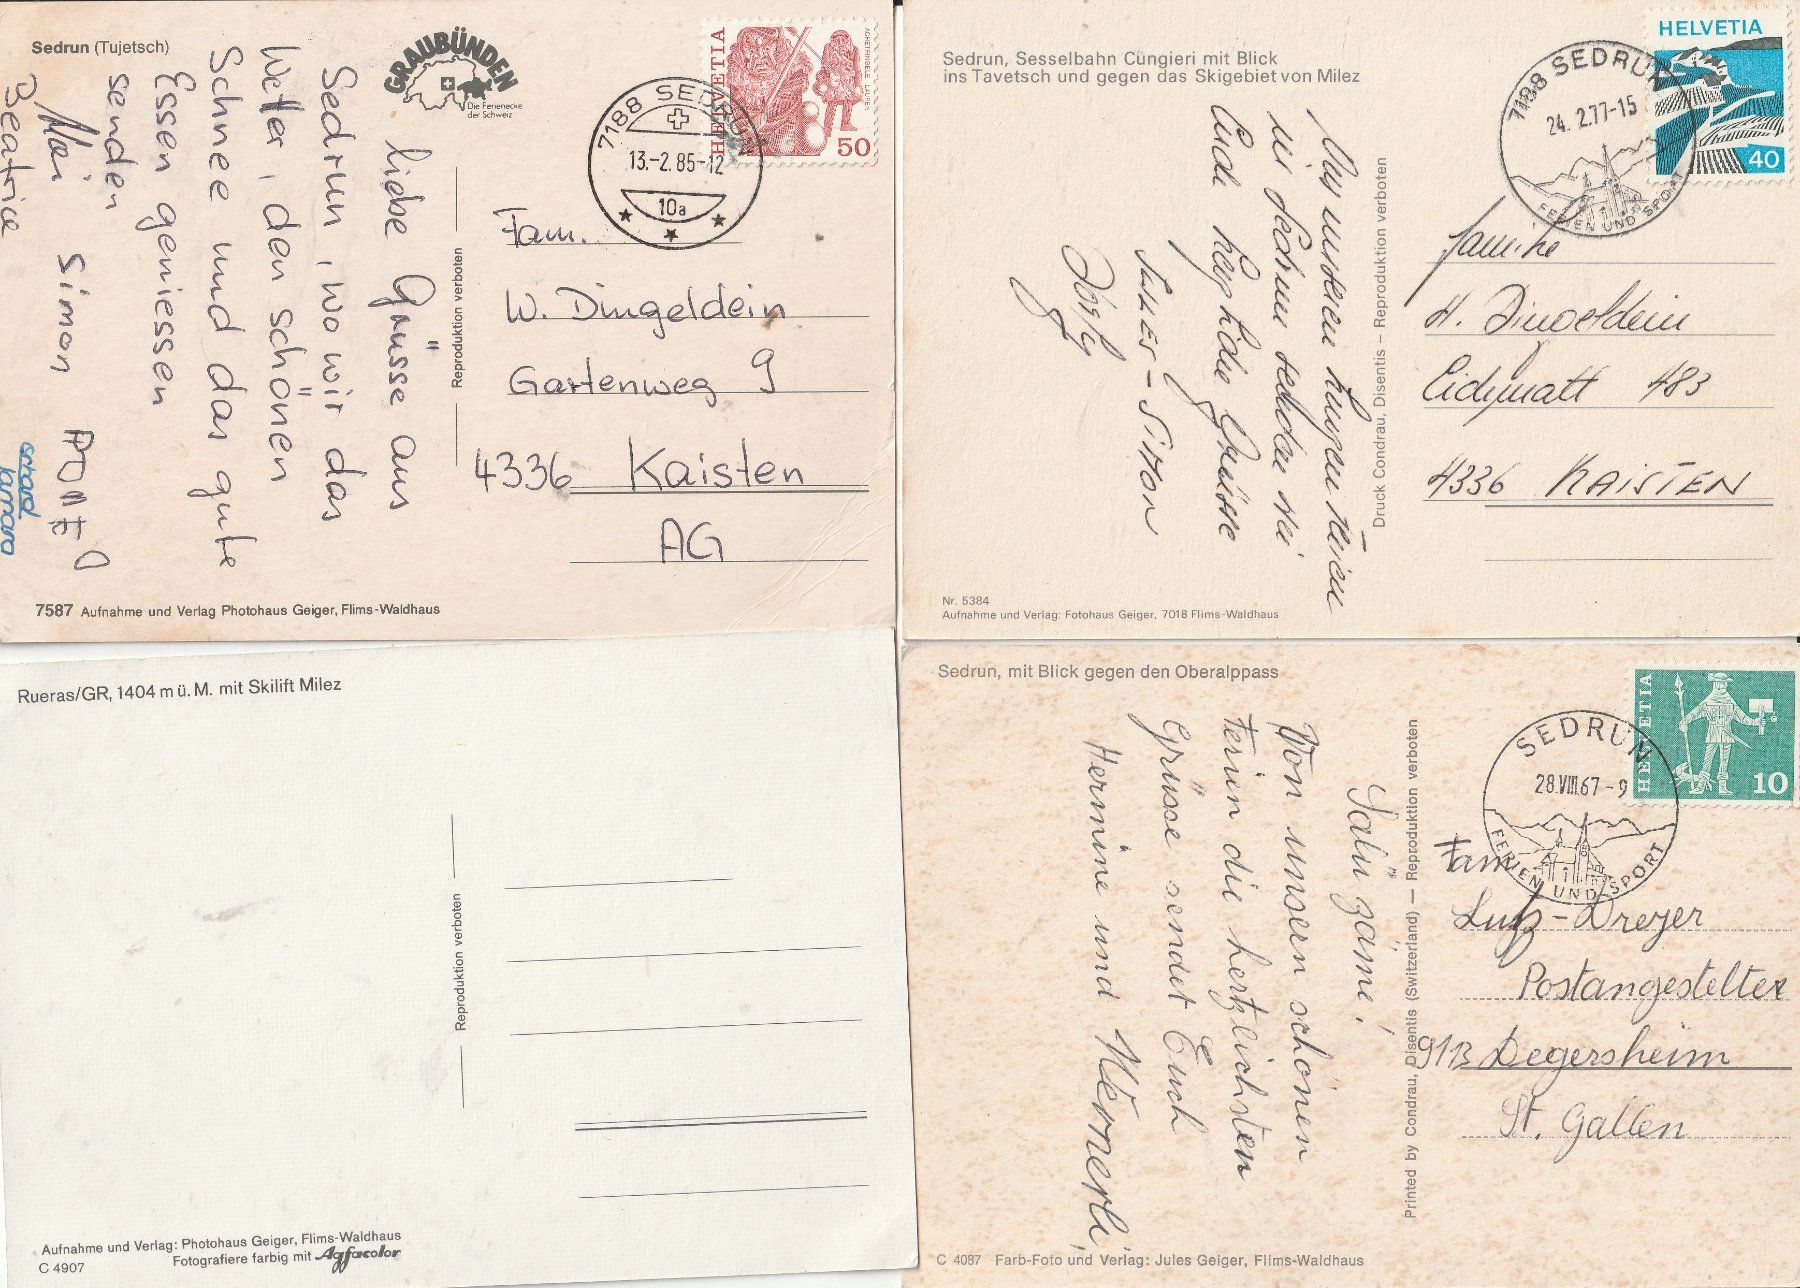 Sedrun (Tujetsch)
GRAUBÜNDEN
Die Ferienecke
der Schweiz
liebe Grüsse aus
Sedrun, wo wir das
Wetter, den schönen
Schnee und das gute
Essen geniessen
senden
Simon
Beatrice
Reproduktion verboten
7188 SEDRUN
13.-2.85-12
10a
HELVETIA
50
Fam.
W. Dingeldein
Gartenweg 9
4336 Kaisten
AG
7587 Aufnahme und Verlag Photohaus Geiger, Flims-Waldhaus
Sedrun, Sesselbahn Cüngieri mit Blick
ins Tavetsch und gegen das Skigebiet von Milez
Aus unseren kurzen Ferien
in Sedrun senden wir
Euch herzliche Grüsse
Josef
Druck Condrau, Disentis – Reproduktion verboten
7188 SEDRUN
24. 2.77-15
FERIEN UND SPORT
HELVETIA
40
Familie
Dingeldein
483
4336 KAISTEN
Nr. 5384
Aufnahme und Verlag: Fotohaus Geiger, 7018 Flims-Waldhaus
Rueras/GR, 1404 m ü. M. mit Skilift Milez
Reproduktion verboten
Aufnahme und Verlag: Photohaus Geiger, Flims-Waldhaus
Fotografiere farbig mit Agfacolor
C 4907
Sedrun, mit Blick gegen den Oberalppass
Salü zäme!
Von unsern schönen
Ferien die herzlichsten
Grüsse sendet Euch
Hermine und Wernerli
Printed by Condrau, Disentis (Switzerland) — Reproduktion verboten
SEDRUN
28.VIII.67-9
FERIEN UND SPORT
HELVETIA
10
Fam
Lutz-Dreyer
Postangestellter
9113 Degersheim
St. Gallen
C 4087 Farb-Foto und Verlag: Jules Geiger, Flims-Waldhaus